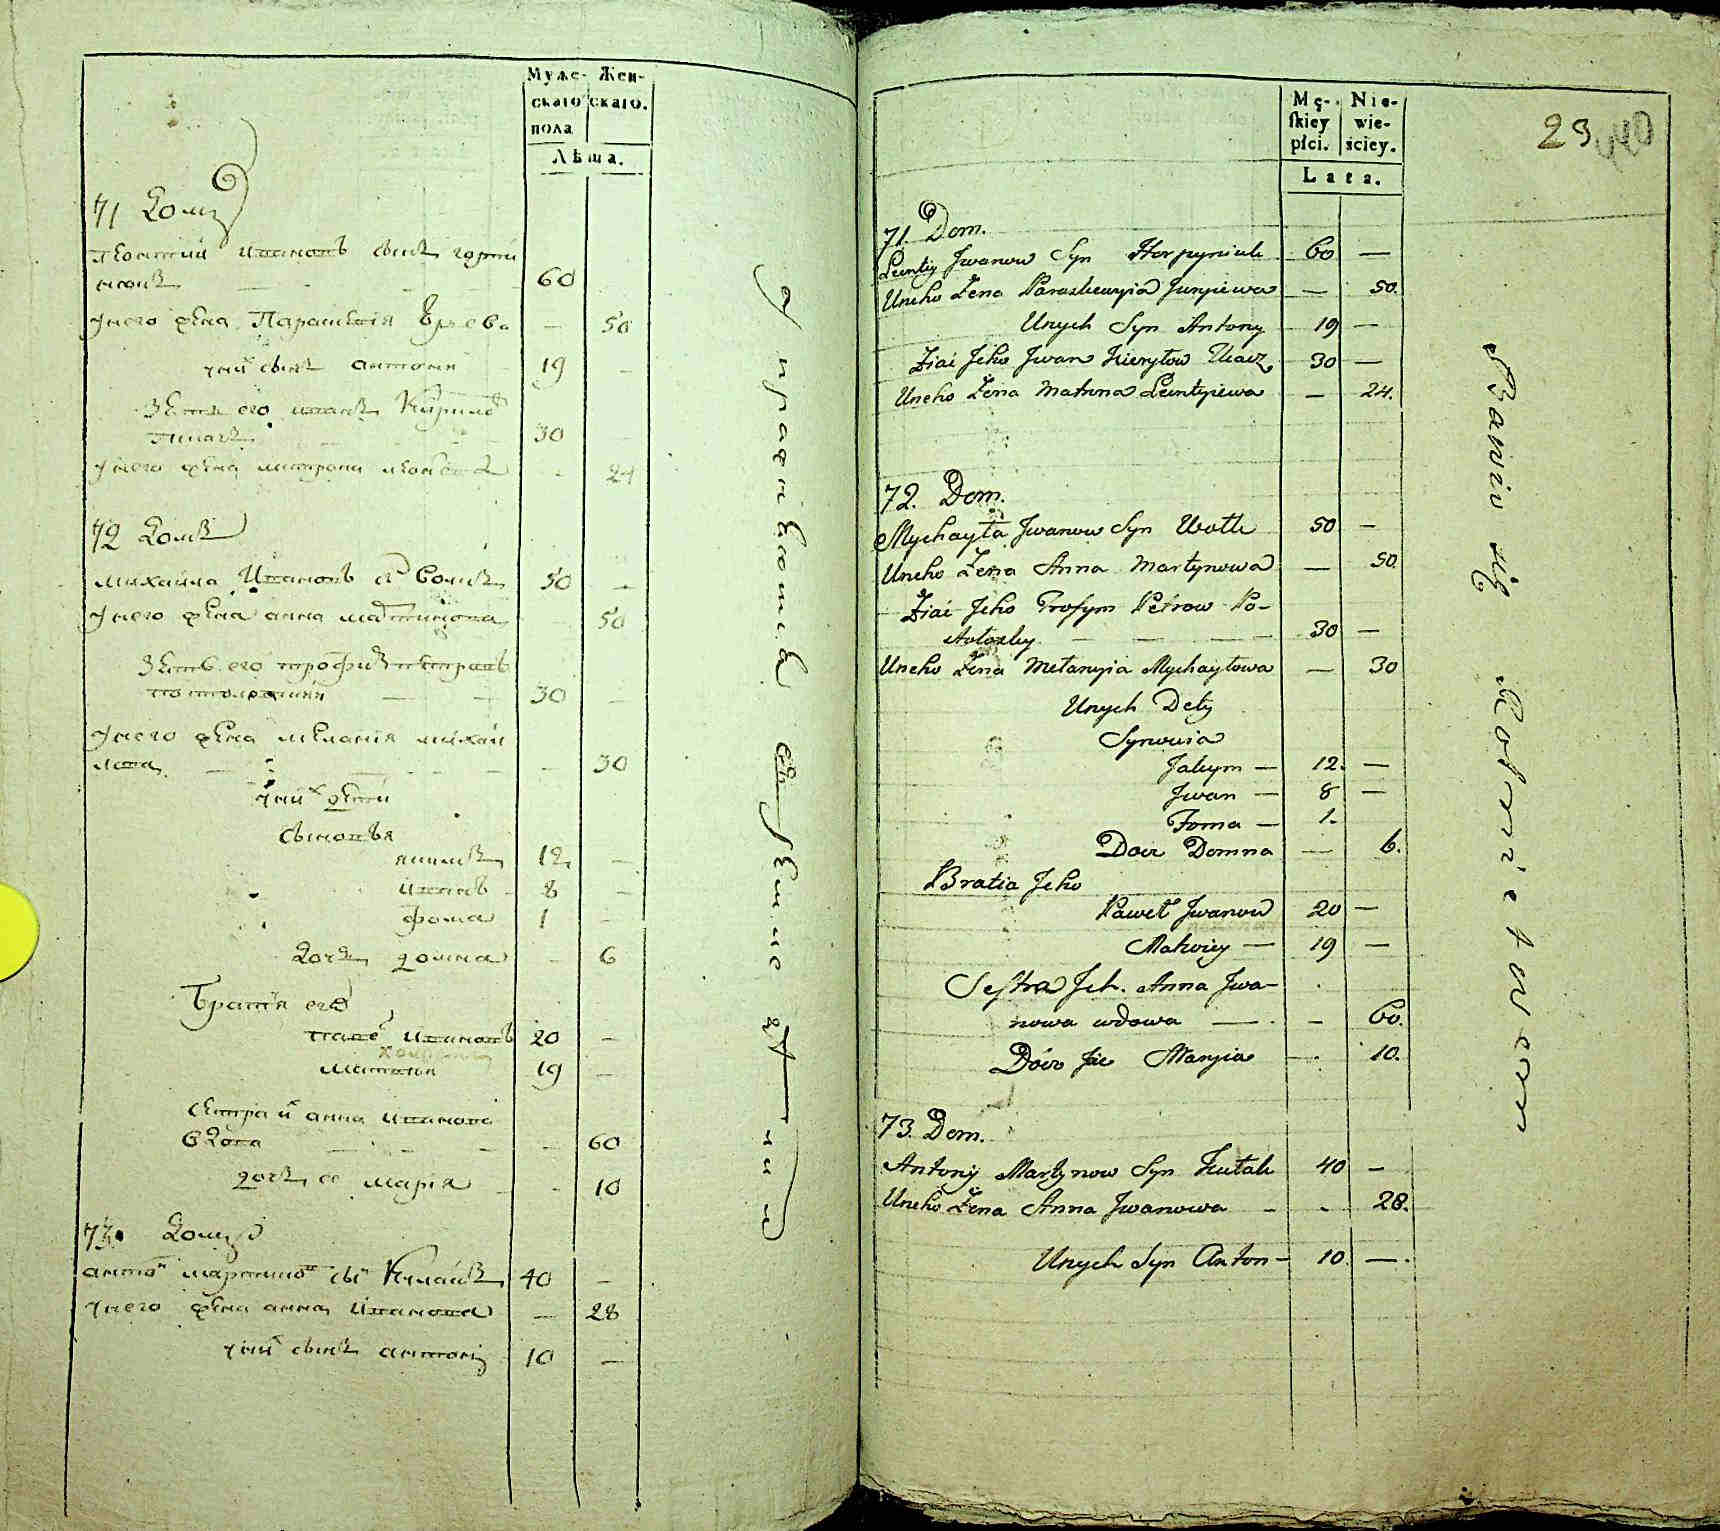 Муже-
скаго
пола
Жен-
скаго.
Лѣта.
71 Домъ
Леонтий Ивановъ сынъ горпи
нюкъ 60
Унего жена Параскевія Юрьева — 50
Унихъ сынъ антоний 19 —
Зять его иванъ Кирилов
ткачъ 30
Унего жена матрона леонтіева - 24
72 Домъ
михайла Ивановъ сынъ Вовкъ 50 —
Унего жена анна мартинова 50
Зять его трофимъ петровъ
30 —
Унего жена меланія михай
лова — 30
Унихъ дети
сыновья
якимъ 12 —
иванъ 8 —
фома 1 —
дочь домна - 6
Братія его
павелъ ивановъ 20 —
матвій 19 —
сестра анна иванова
вдова — 60
дочь ее марія - 10
73. Домъ
антонъ мартиновъ сынъ 40 —
Унего жена анна иванова — 28
Унихъ сынъ антоній 10 —
упражняются въ земледѣліи
Mę-
skiey
płci.
Nie-
wie-
ściey.
Lata.
23
71. Dom.
Leontiy Jwanow Syn Horpyniuk 60 —
Uneho Żena Paraskewyia Juryiewa — 50.
Unych Syn Antony 19 —
Ziat Jeho Jwan Kiryłow Tkacz 30 —
Uneho Żena Matrona Leontyiewa — 24.
72. Dom.
Mychayła Jwanow Syn Wołk 50 —
Uneho Żena Anna Martynowa — 50.
Ziat Jeho Trofym Petrow Po-
30 —
Uneho Żena Mełanyia Mychayłowa — 30
Unych Dety
Synowia
Jakym — 12. —
Jwan — 8 —
Foma — 1.
Docz Domna — 6.
Bratia Jeho
Paweł Jwanow 20 —
Matwiey — 19 —
Sestra Jeh. Anna Jwa-
nowa wdowa — - 60.
Docz Jie Maryia - 10.
73. Dom.
Antoniy Martynow Syn 40 —
Uneho Żena Anna Jwanowa - - 28.
Unych Syn Anton - 10. —
Bawią się Rolnictwem